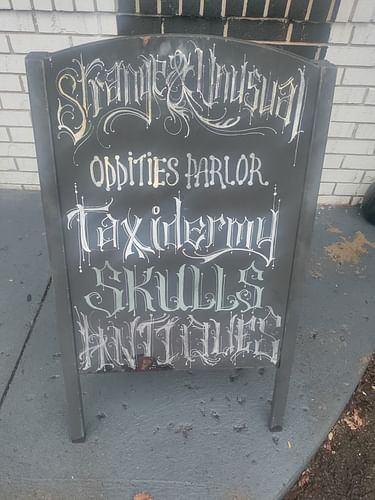 Strange & Unusual
ODDITIES PARLOR
Taxidermy
SKULLS
ANTIQUES